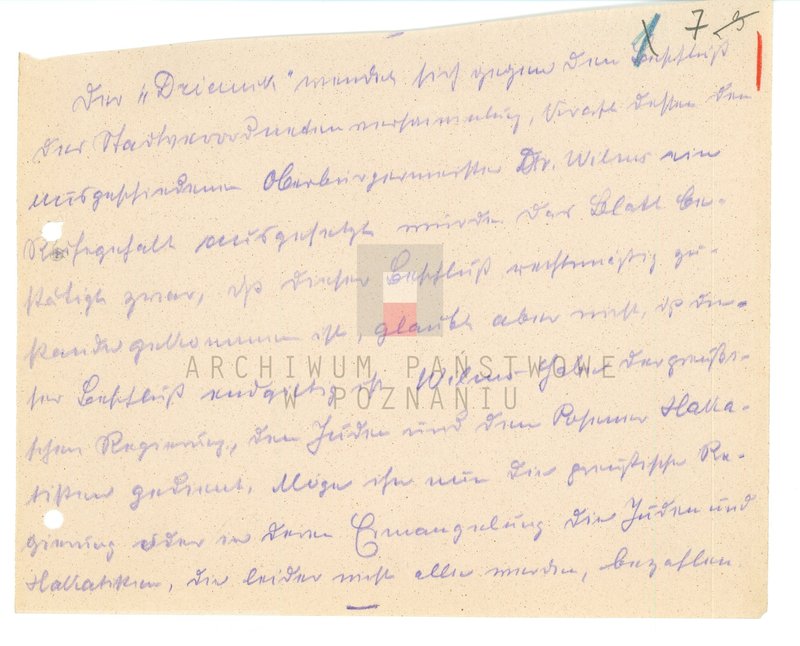 7
Der „Dziennik" wendet sich gegen den Beschluß
der Stadtverordnetenversammlung, kraft dessen dem
ausgeschiedenen Oberbürgermeister Dr. Wilms ein
Ruhegehalt ausgesetzt wurde. Das Blatt be-
stätigt zwar, daß dieser Beschluß rechtmäßig zu-
stande gekommen ist, glaubt aber nicht, daß die-
ser Beschluß endgiltig ist. Wilms habe der preußi-
schen Regierung, den Juden und den Posener Haka-
tisten gedient. Möge ihn nun die preußische Re-
gierung oder in deren Ermangelung die Juden und
Hakatisten, die leider nicht alle werden, bezahlen.
ARCHIWUM PAŃSTWOWE
W POZNANIU